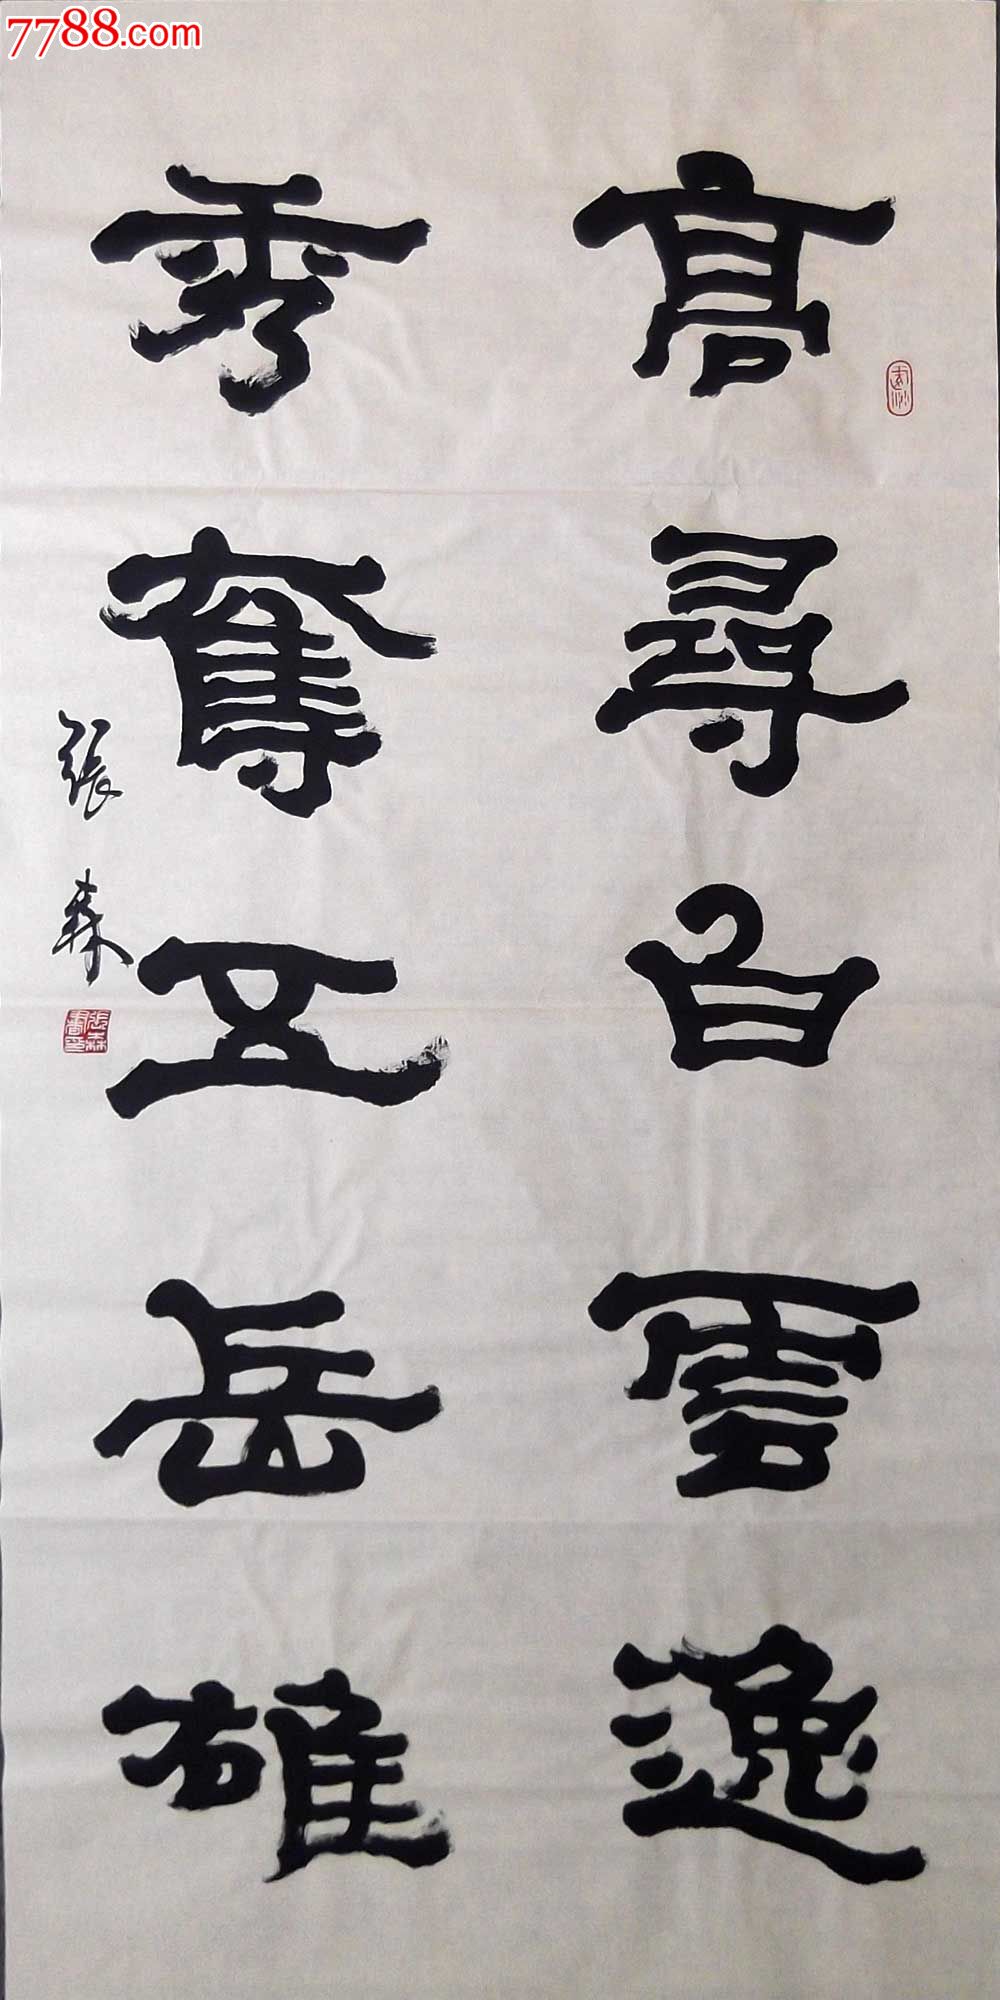 7788.com
高尋白雲逸
秀奪五岳雄
張森
張森書印